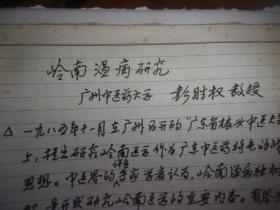 岭南温病研究
广州中医药大学 彭胜权教授
△一九八五年十一月在广州召开的"广东省振兴中医大会
上,提出研究岭南医学作为广东中医药特色的战
思想。中医界的许多专家学者认为,岭南温病独
是开发研究岭南医学的重要内容。有